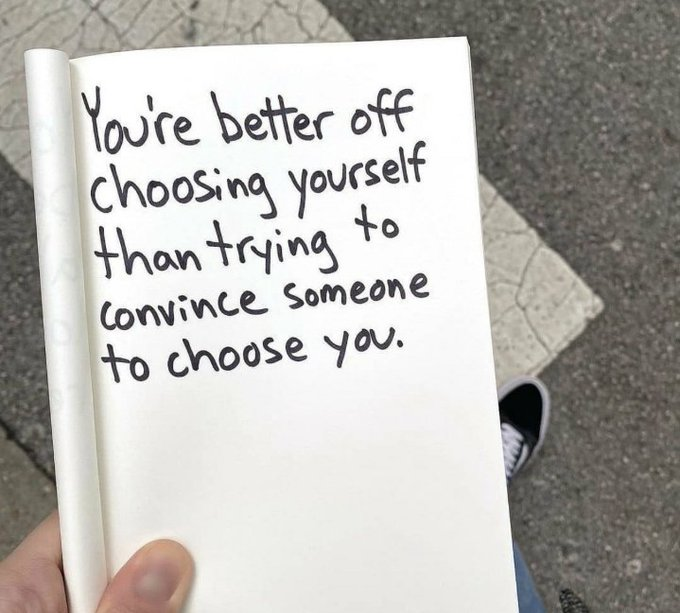 You're better off
choosing yourself
than trying to
convince someone
to choose you.